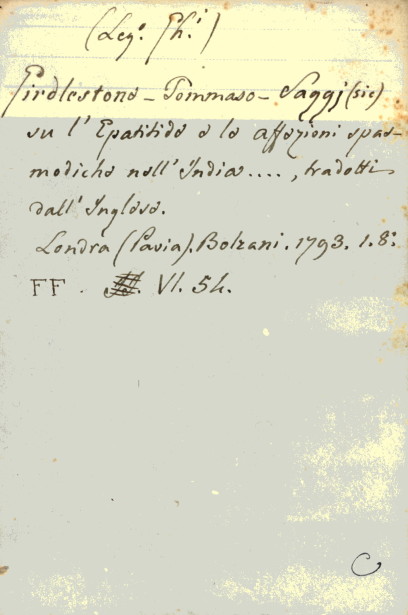 (Leg.º Gh.i)
Girdlestone - Tommaso - Saggj (sic)
su l'Epatitide e le affezioni spas-
modiche nell'Indie ...., tradotti
dall'Inglese.
Londra (Pavia). Bolzani. 1793. 1. 8º
FF . VI. 54.
C